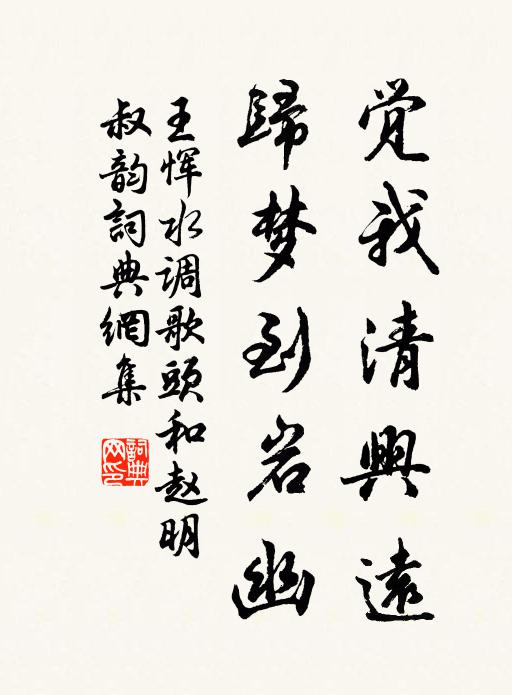 觉我清興遠
歸梦到岩幽
王恽水调歌頭和赵明
叔韵詞典網集
詞典
网印